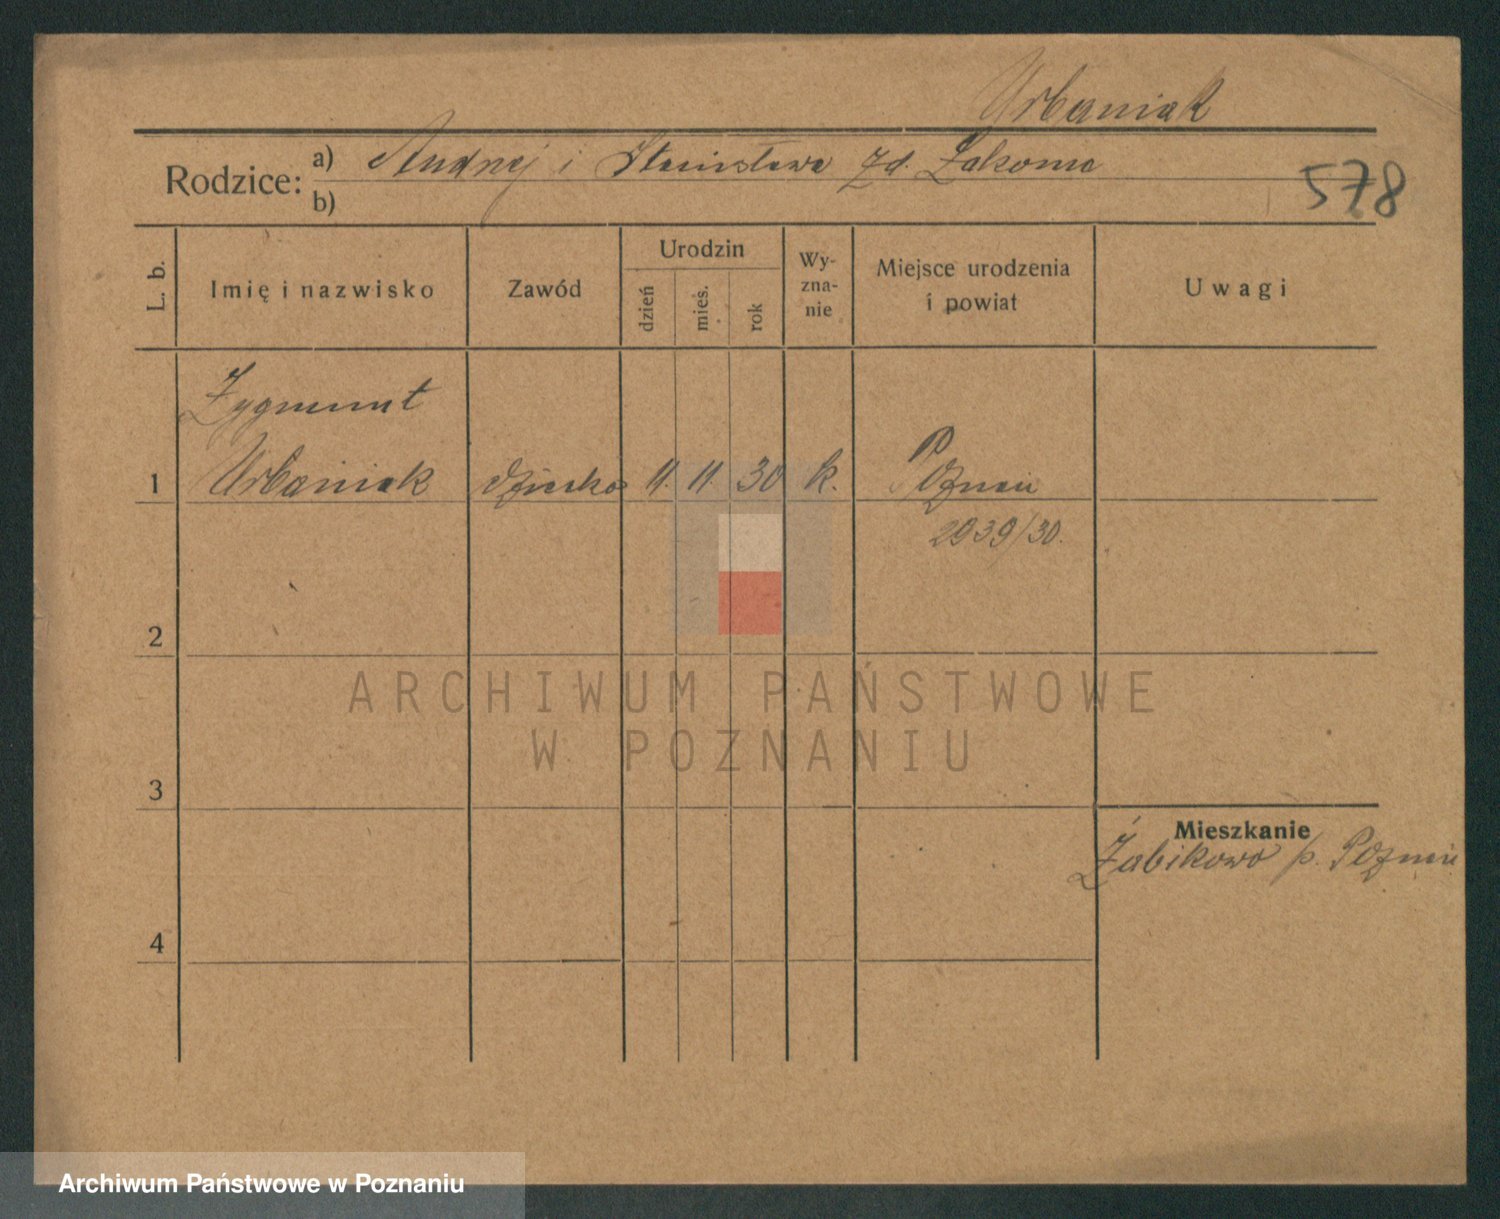 Urbaniak
Rodzice: a) Andrzej i Stanisława zd. Łakoma
b)
578
L. b.
Imię i nazwisko
Zawód
Urodzin
dzień
mieś.
rok
Wy-
zna-
nie
Miejsce urodzenia
i powiat
Uwagi
Zygmunt
1 Urbaniak dziecko 11 11 30 k. Poznań
2939/30.
2
ARCHIWUM PAŃSTWOWE
W POZNANIU
3
Mieszkanie
Żabikowo p. Poznań
4
Archiwum Państwowe w Poznaniu